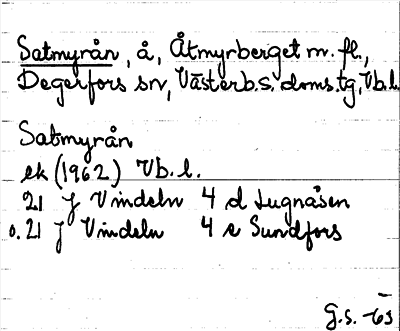 Satmyrån, å, Åtmyrberget m. fl.,
Degerfors sn, Västerb.s. doms.tg, Vb.l.
Satmyrån
ek (1962) Vb.l.
21 J Vindeln 4 d Lugnåsen
o. 21 J Vindeln 4 e Sundfors
G.S. -65